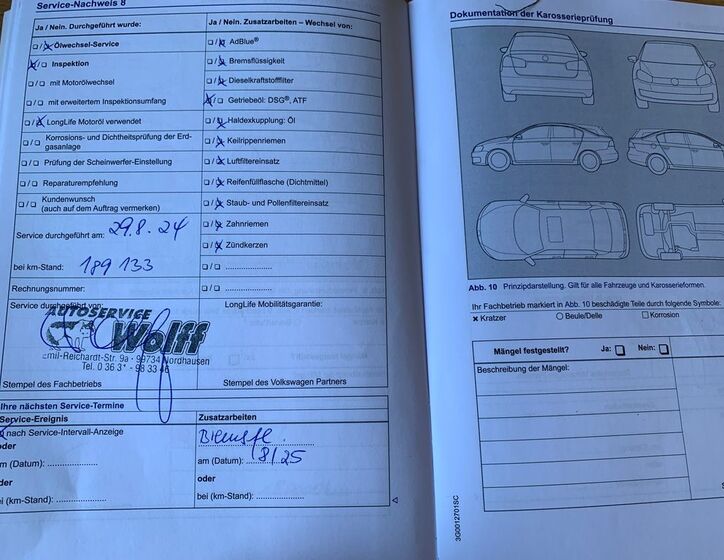 Service-Nachweis 8
Ja / Nein. Durchgeführt wurde:
Ölwechsel-Service
Inspektion
mit Motorölwechsel
mit erweitertem Inspektionsumfang
LongLife Motoröl verwendet
Korrosions- und Dichtheitsprüfung der Erd-
gasanlage
Prüfung der Scheinwerfer-Einstellung
Reparaturempfehlung
Kundenwunsch
(auch auf dem Auftrag vermerken)
Service durchgeführt am: 29.8.24
bei km-Stand: 189 133
Rechnungsnummer:
Service durchgeführt von:
AUTOSERVICE
Wolff
Emil-Reichardt-Str. 9a · 99734 Nordhausen
Stempel des Fachbetriebs
Ja / Nein. Zusatzarbeiten – Wechsel von:
AdBlue®
Bremsflüssigkeit
Dieselkraftstofffilter
Getriebeöl: DSG®, ATF
Haldexkupplung: Öl
Keilrippenriemen
Luftfiltereinsatz
Reifenfüllflasche (Dichtmittel)
Staub- und Pollenfiltereinsatz
Zahnriemen
Zündkerzen
LongLife Mobilitätsgarantie:
Stempel des Volkswagen Partners
Ihre nächsten Service-Termine
Service-Ereignis
nach Service-Intervall-Anzeige
oder
am (Datum):
oder
bei (km-Stand):
Zusatzarbeiten
am (Datum): 8/25
oder
bei (km-Stand):
Dokumentation der Karosserieprüfung
Abb. 10 Prinzipdarstellung. Gilt für alle Fahrzeuge und Karosserieformen.
Ihr Fachbetrieb markiert in Abb. 10 beschädigte Teile durch folgende Symbole:
x Kratzer
Beule/Delle
Korrosion
Mängel festgestellt? Ja: Nein:
Beschreibung der Mängel:
3G0012701SC